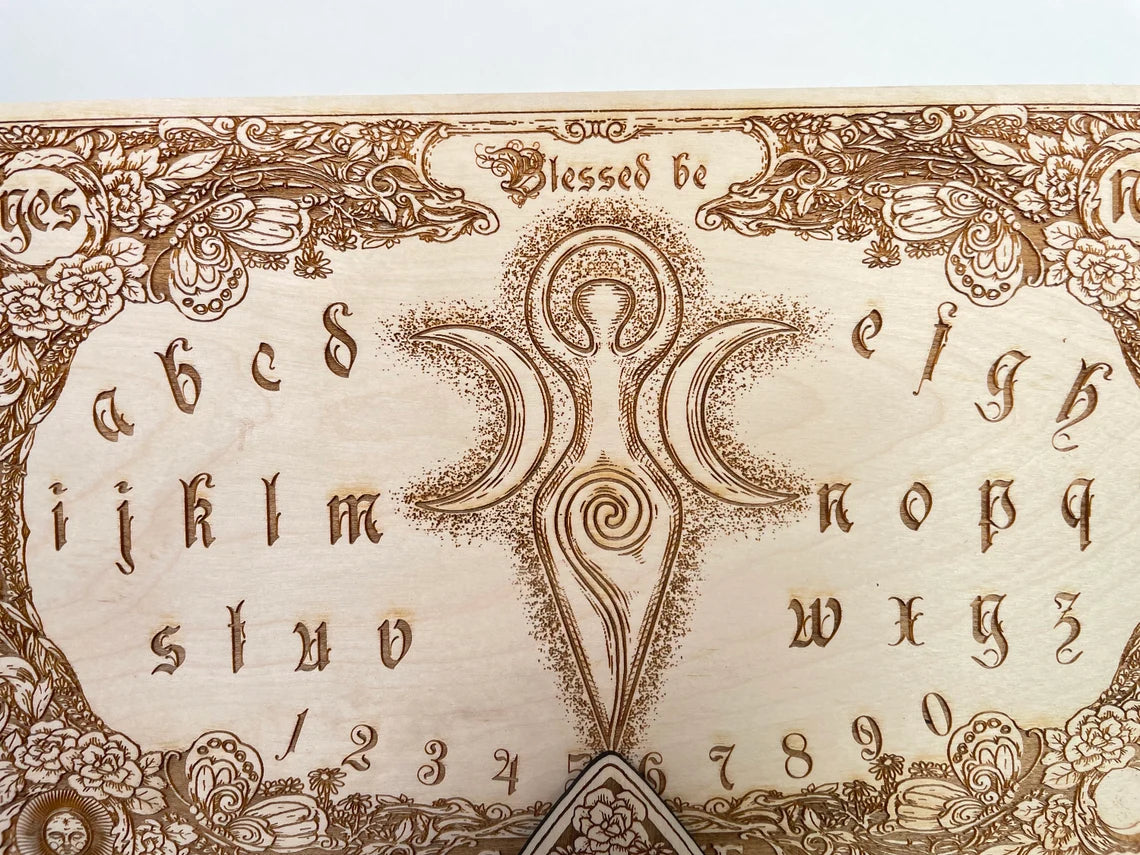 Blessed be
yes
a b c d e f g h
i j k l m n o p q
s t u v w x y z
1 2 3 4 6 7 8 9 0